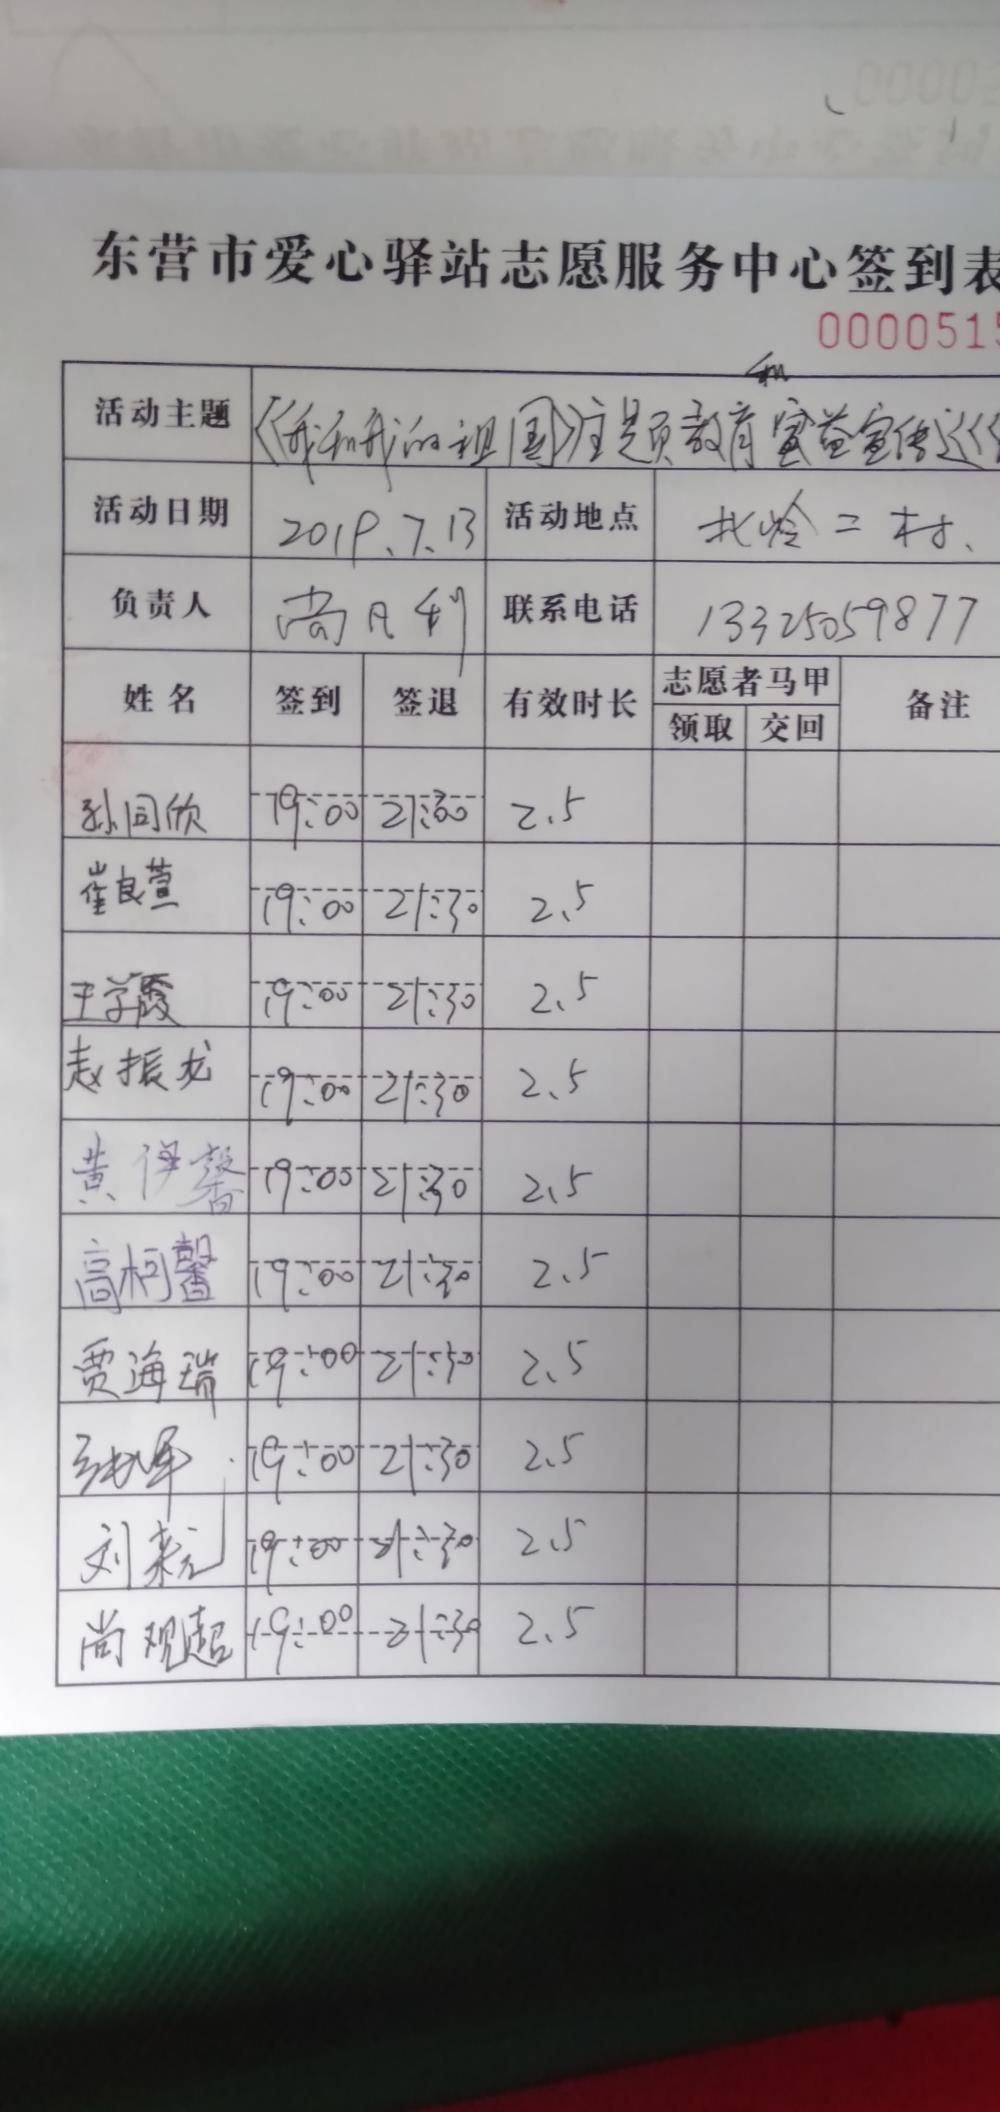 东营市爱心驿站志愿服务中心签到表
0000515
和
活动主题 《我和我的祖国》主题教育 公益宣传
活动日期 2019.7.13 活动地点 北岭二村、
负责人 尚凡利 联系电话 13325059877
姓名 签到 签退 有效时长 志愿者马甲 备注
领取 交回
孙同欣 19:00 21:30 2.5
崔良萱 19:00 21:30 2.5
王学霞 19:00 21:30 2.5
赵振龙 19:00 21:30 2.5
黄伊馨 19:00 21:30 2.5
高柯馨 19:00 21:30 2.5
贾海瑞 19:00 21:30 2.5
张军 19:00 21:30 2.5
刘来元 19:00 21:30 2.5
尚观超 19:00 21:30 2.5